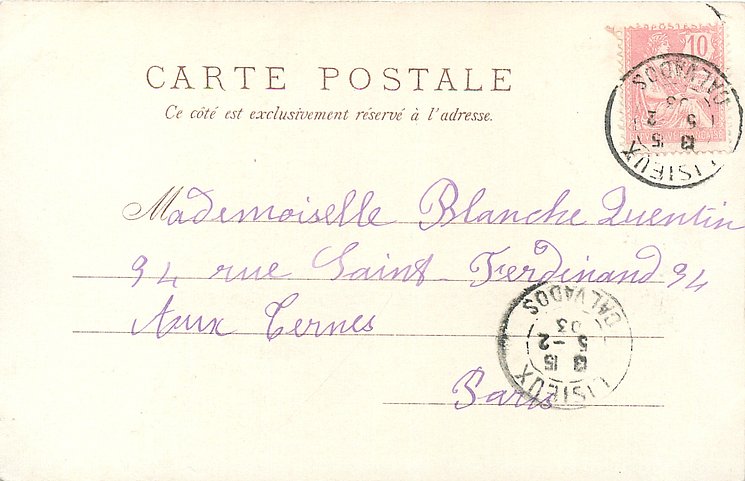 CARTE POSTALE
Ce côté est exclusivement réservé à l'adresse.
10
LISIEUX
CALVADOS
13 15
5 2
03
Mademoiselle Blanche Quentin
94 rue Saint-Ferdinand 94
Aux Ternes
Paris
LISIEUX
CALVADOS
13 15
5 -2
03